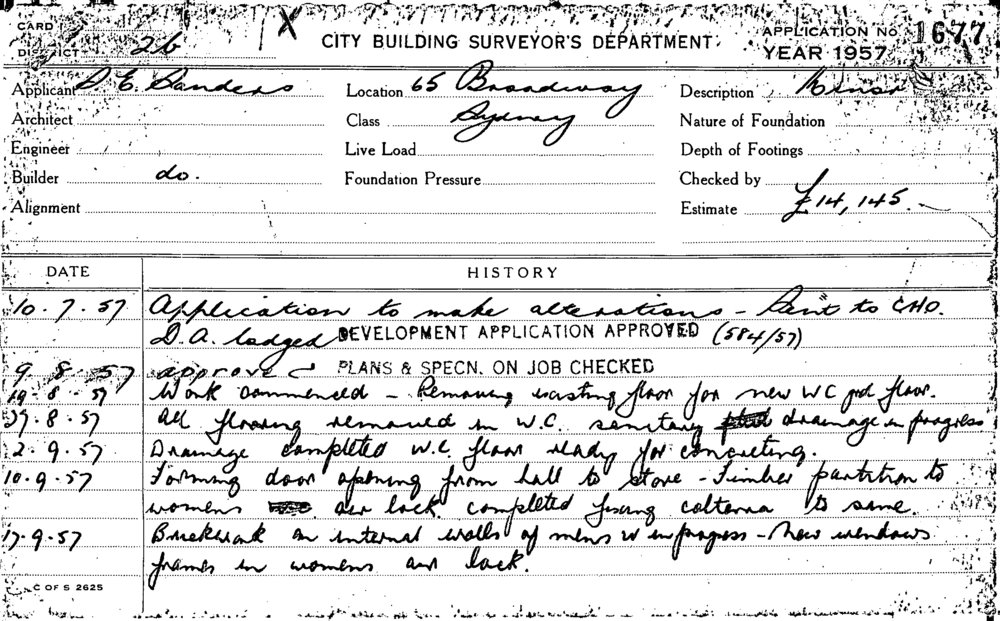 CARD
DISTRICT 26 X CITY BUILDING SURVEYOR'S DEPARTMENT. APPLICATION No. 1677
YEAR 1957
Applicant D. E. Sanders Location 65 Broadway Description Minor
Architect Class Sydney Nature of Foundation
Engineer Live Load Depth of Footings
Builder do. Foundation Pressure Checked by
Alignment Estimate £14,145.
DATE HISTORY
10.7.57 Application to make alterations - Sent to CHO.
D.A. lodged DEVELOPMENT APPLICATION APPROVED (584/57)
9.8.57 approved PLANS & SPECN. ON JOB CHECKED
19.8.57 Work commenced - Removing existing floor for new WC grd floor.
27.8.57 All flooring removed in W.C. sanitary drainage in progress
2.9.57 Drainage completed W.C. floor ready for concreting.
10.9.57 Forming door opening from hall to store - Timber partition to
womens air lock completed fixing calterra to same.
17.9.57 Brickwork on internal walls of mens in progress - New windows
frames in womens air lock.
C OF S 2625